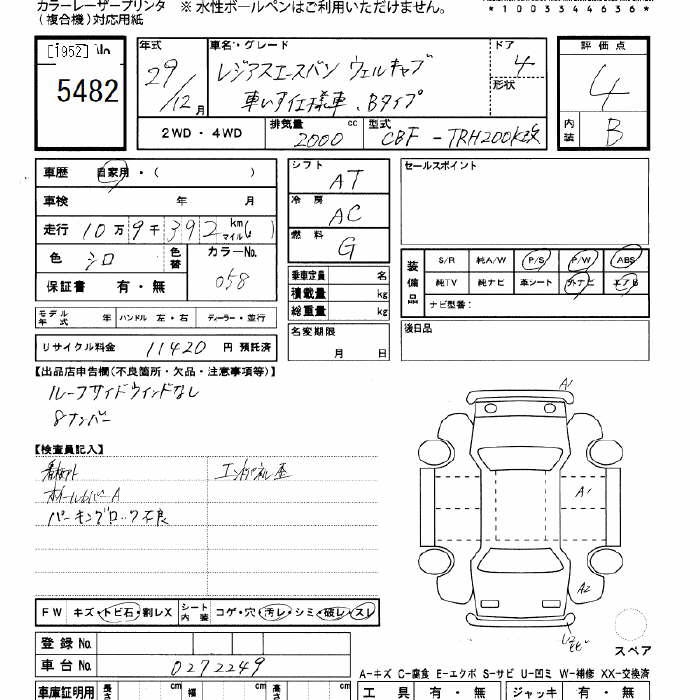 カラーレーザープリンタ ※ 水性ボールペンはご利用いただけません。
(複合機)対応用紙
*1003344636*
[1952] No
5482
年式 29/12月
車名・グレード レジアスエースバン ウェルキャブ
車いす仕様車、Bタイプ
ドア 4
形状
評価点 4
内装 B
2WD・4WD
排気量 2000 cc
型式 CBF-TRH200K改
車歴 自家用・( )
車検 年 月
走行 10万9千392km マイル( )
色 シロ 色替 カラーNo. 058
保証書 有・無
モデル年式 年 ハンドル 左・右 ディーラー・並行
リサイクル料金 11420 円 預託済
シフト AT
冷房 AC
燃料 G
乗車定員 名
積載量 kg
総重量 kg
名変期限 月 日
セールスポイント
装備品 S/R 純A/W P/S P/W ABS
純TV 純ナビ 革シート 外ナビ エアB
ナビ型番:
後日品
【出品店申告欄(不良箇所・欠品・注意事項等)】
ルーフサイドウインドなし
8ナンバー
【検査員記入】
エンドパネル歪
パーキングロック不良
A1
A1
A2
FW キズ・トビ石・割レX シート内装 コゲ・穴・汚レ・シミ・破レ・スレ
スペア
登録 No.
車台 No. 0272249
A-キズ C-腐食 E-エクボ S-サビ U-凹ミ W-補修 XX-交換済
車庫証明用 長さ cm 幅 cm 高さ cm
工具 有・無 ジャッキ 有・無